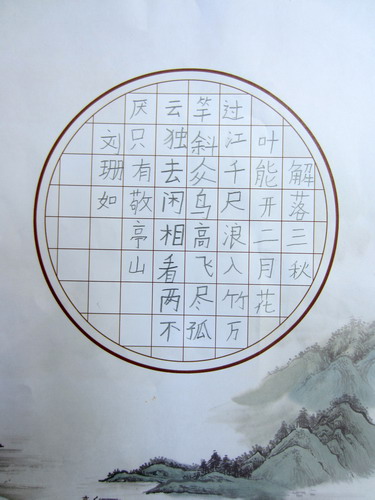 解落三秋
叶能开二月花
过江千尺浪入竹万
竿斜众鸟高飞尽孤
云独去闲相看两不
厌只有敬亭山
刘珊如